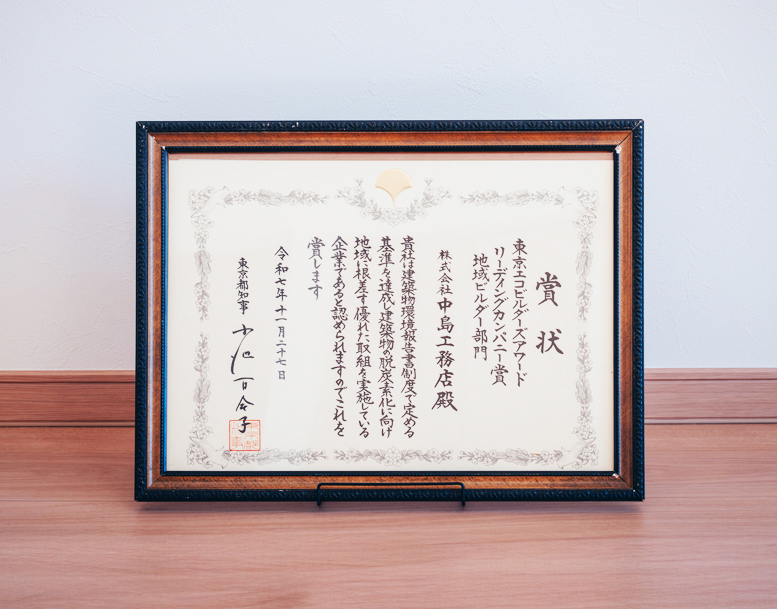 賞状
東京エコビルダーズアワード
リーディングカンパニー賞
地域ビルダー部門
株式会社中島工務店殿
貴社は建築物環境報告書制度で定める
基準を達成し建築物の脱炭素化に向け
地域に根差す優れた取組を実施している
企業であると認められますのでこれを
賞します
令和七年十一月二十七日
東京都知事 小池百合子